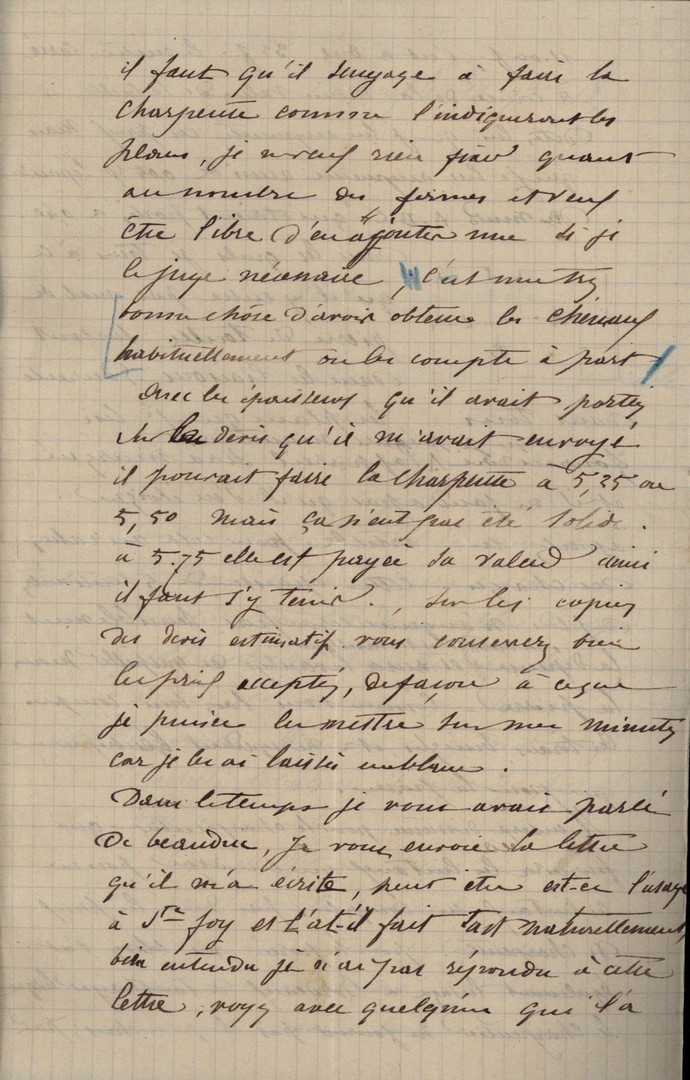 il faut qu'il s'engage à faire la
charpente comme l'indiqueront les
plans, je ne veux rien fixer quant
au nombre des fermes et veux
être libre d'en ajouter une si je
le juge nécessaire, c'est une très
bonne chose d'avoir obtenu les chéneaux
habituellement on les compte à part
avec les épaisseurs qu'il avait portées
au devis qu'il m'avait envoyé
il pouvait faire la charpente à 5,25 ou
5,50 mais ça n'eut pas été solide.
à 5.75 elle est payée sa valeur ainsi
il faut s'y tenir., sur les copies
des devis estimatifs vous conserverez bien
les prix acceptés, de façon à ce que
je puisse les mettre sur mes minutes
car je les ai laissés en blanc.
Dans le temps je vous avais parlé
de beaudu, Je vous envoie la lettre
qu'il m'a écrite, peut être est-ce l'usage
à Ste foy et l'at-il fait tout naturellement,
bien entendu je n'ai pas répondu à cette
lettre, voyez avec quelqu'un qui l'a